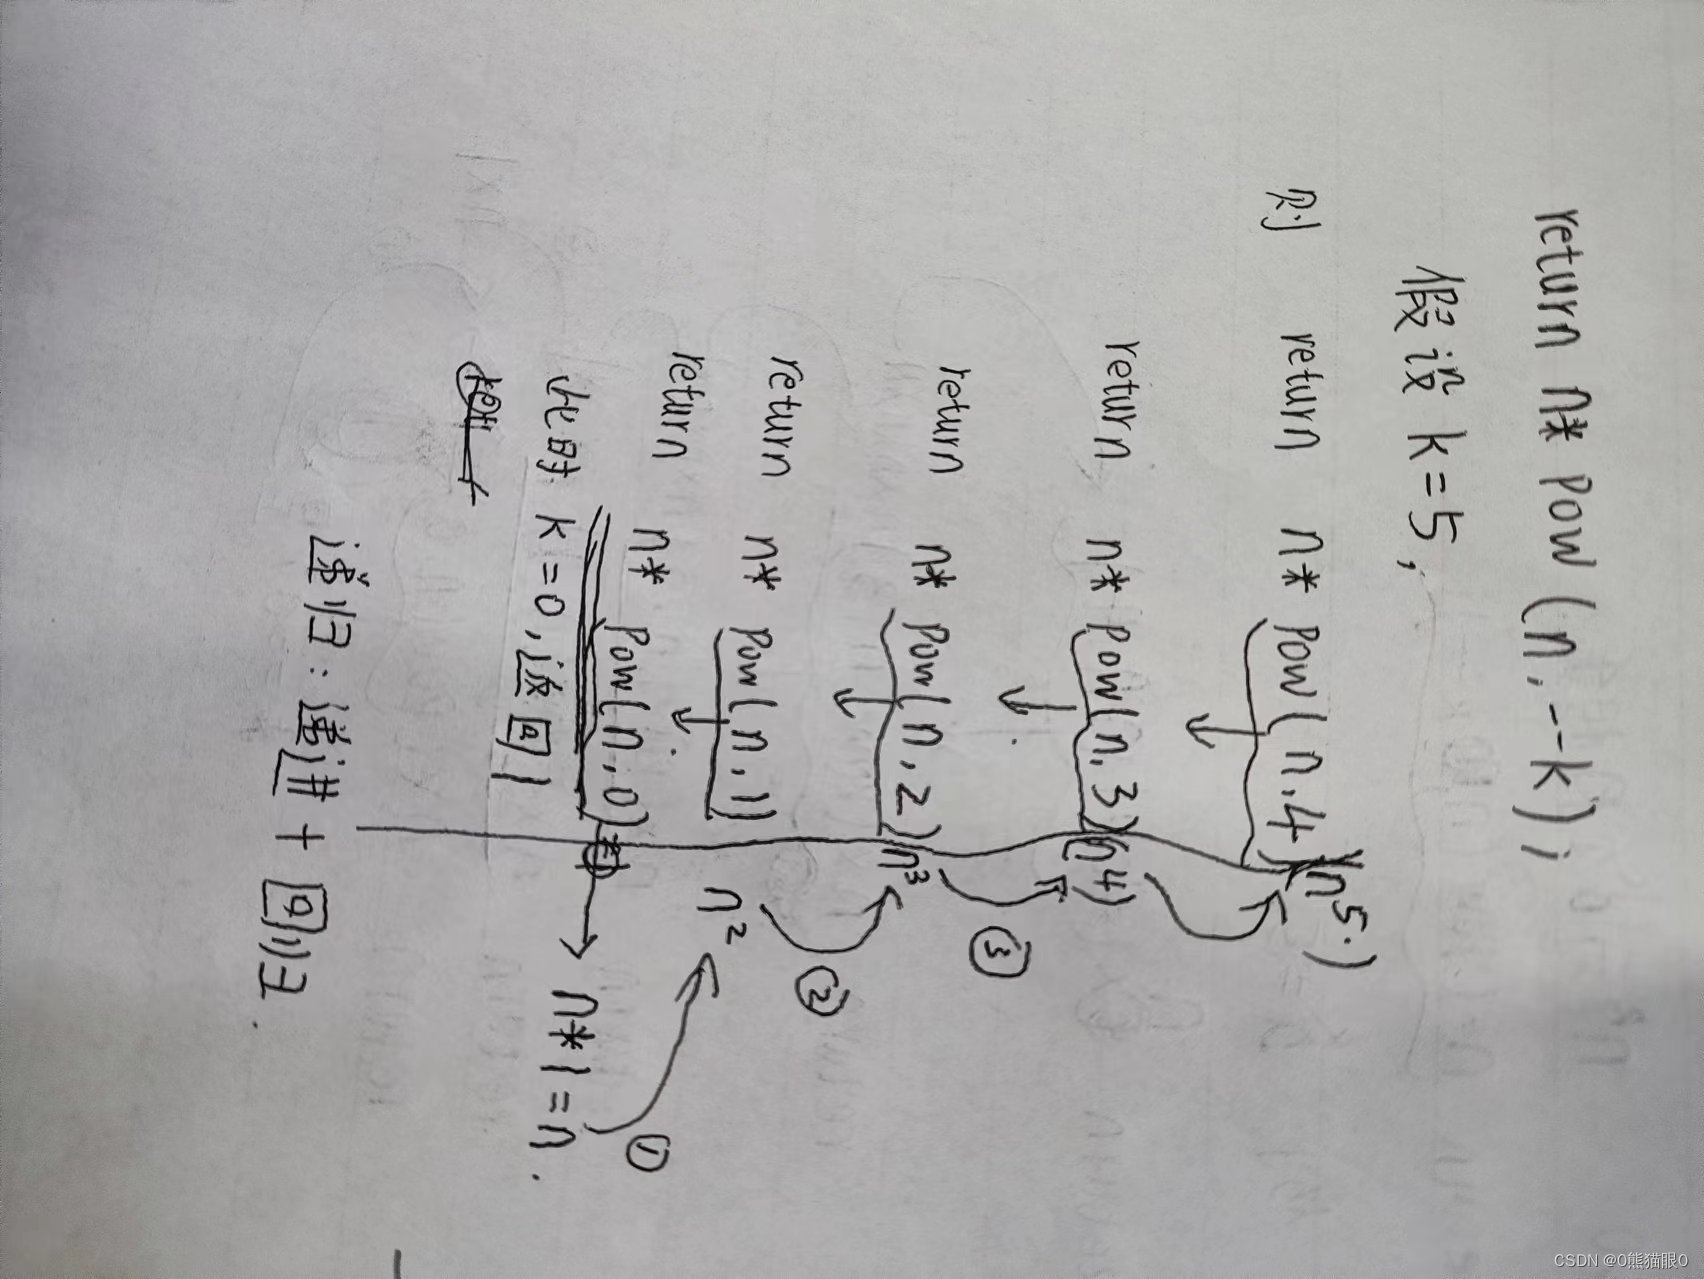 return n* Pow(n,--k);
假设 k=5,
则 return n* Pow(n,4) (n⁵.)
return n* Pow(n,3) (n⁴)
return n* Pow(n,2) n³ ③
return n* Pow(n,1) n² ②
return n* Pow(n,0)
此时 k=0,返回1 n*1=n. ①
递归:递进+回归.
CSDN @0熊猫眼0